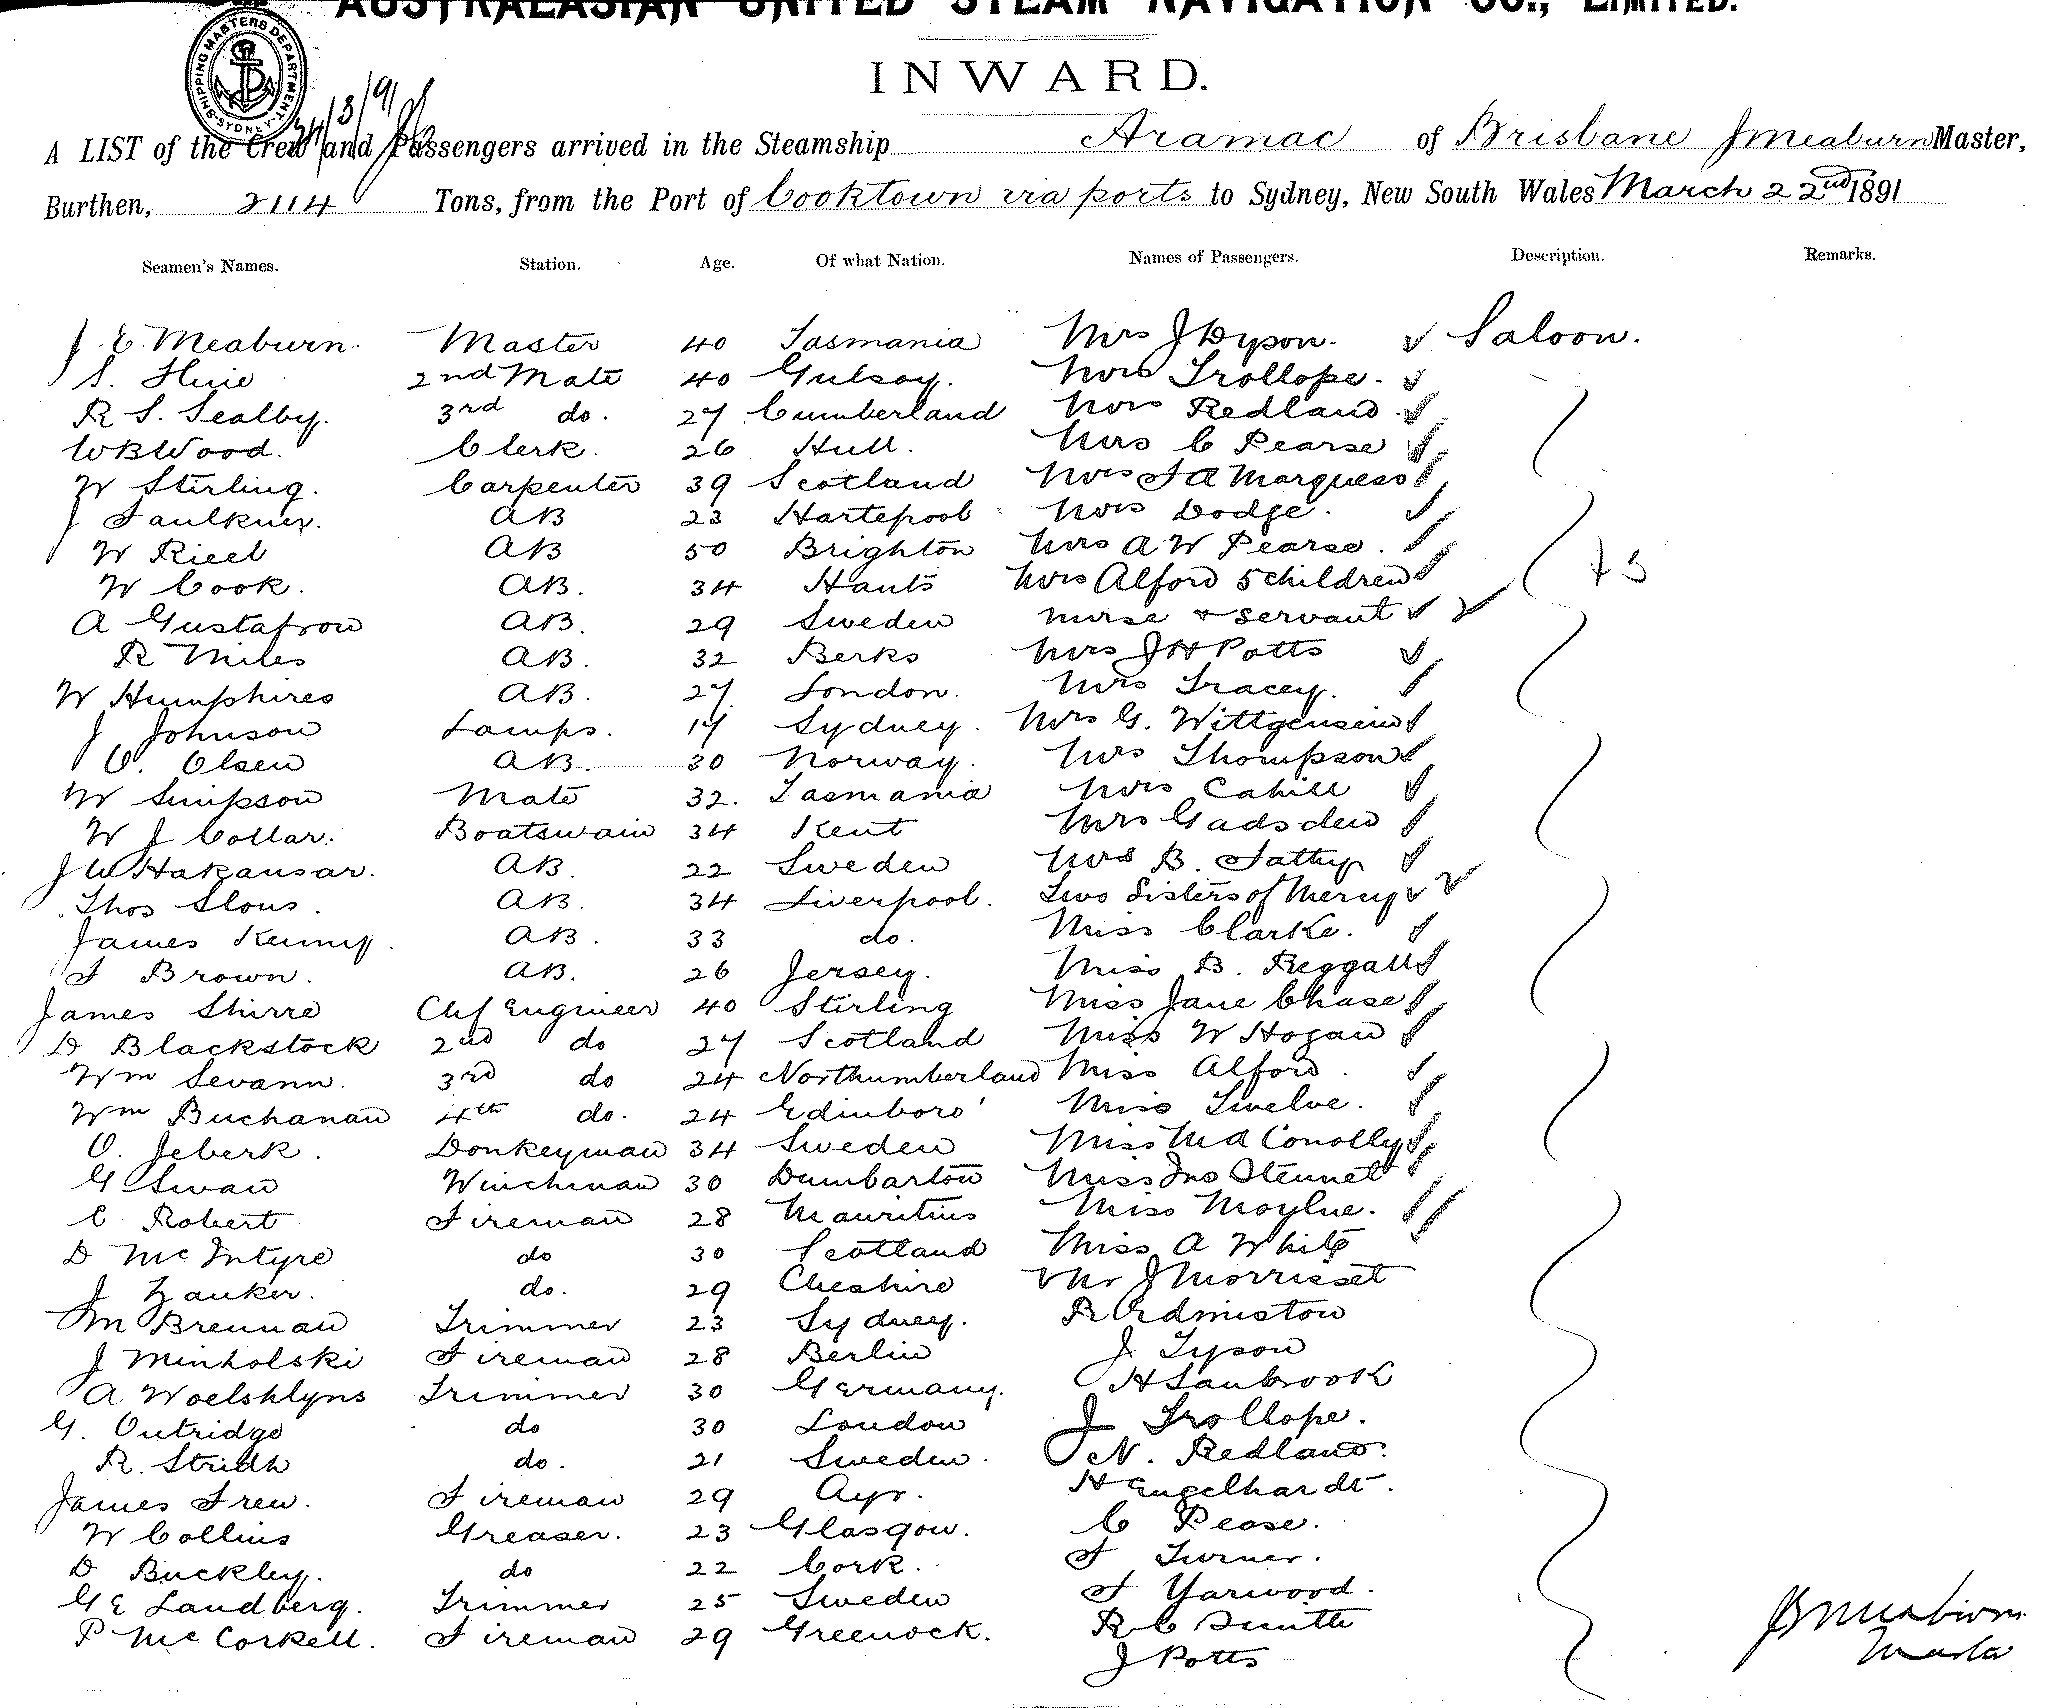 AUSTRALASIAN UNITED STEAM NAVIGATION CO., LIMITED.
INWARD.
SHIPPING MASTERS DEPARTMENT SYDNEY
24/3/91
A LIST of the Crew and Passengers arrived in the Steamship Aramac of Brisbane J Meaburn Master,
Burthen, 2114 Tons, from the Port of Cooktown via ports to Sydney, New South Wales March 22nd 1891
Seamen's Names. Station. Age. Of what Nation. Names of Passengers. Description. Remarks.
J. E. Meaburn. Master 40 Tasmania Mrs J Dyson. Saloon.
S. Huie 2nd Mate 40 Mrs Trollope.
R S. Sealby. 3rd do. 27 Cumberland Mrs Redland
W B Wood. Clerk. 26 Hull. Mrs C Pearse
W Stirling. Carpenter 39 Scotland Mrs J A Marquess
J Faulkner. AB 23 Hartepool Mrs Dodge.
W Rieel AB 50 Brighton Mrs A W Pearse.
W Cook. AB. 34 Hants Mrs Alford 5 children
A Gustafron AB. 29 Sweden nurse & servant
R Miles AB. 32 Berks Mrs J H Potts
W Humphires AB. 27. London. Mrs Tracey.
J Johnson Lamps. 17 Sydney. Mrs G. Wittgensein
O. Olsen AB. 30 Norway. Mrs Thompson
W Simpson Mate 32. Tasmania Mrs Cahill
W J Collar. Boatswain 34 Kent Mrs Gadsden
J W Hakansar. AB. 22 Sweden Mrs B.
Thos Slous. AB. 34 Liverpool. Two Sisters of Mercy
James Kemp. AB. 33 do. Miss Clarke.
J Brown. AB. 26 Jersey. Miss B. Beggall
James Shirre Chf Engineer 40 Stirling Miss Jane Chase
D Blackstock 2nd do 27 Scotland Miss W Hogan
Wm Sevann. 3rd do 24 Northumberland Miss Alford.
Wm Buchanan 4th do. 24 Edinboro' Miss Twelve.
O. Jeberk. Donkeyman 34 Sweden Miss M A Conolly
G Swan Winchman 30 Dumbarton Miss Jno Stennet
C Robert Fireman 28 Mauritius Miss Moylne.
D McIntyre do 30 Scotland Miss A White
J Zauker. do. 29 Cheshire Mr J Morrisset
M Brennan Trimmer 23 Sydney. R Edmiston
J Minholski Fireman 28 Berlin J Tyson
A. Woelshlyns Trimmer 30 Germany. H Sanbrook
G. Outridge do 30 London J Trollope.
R. Stridh do. 21 Sweden. N. Redland.
James Frew. Fireman 29 Ayr. H Engelhardt.
W Collins Greaser. 23 Glasgow. C Pease.
D Buckley. do 22 Cork. F Turner.
G E Landberg. Trimmer 25 Sweden F Yarwood.
P McCorkell. Fireman 29 Greenock. R C Smith
J Potts
J E Meaburn
Master